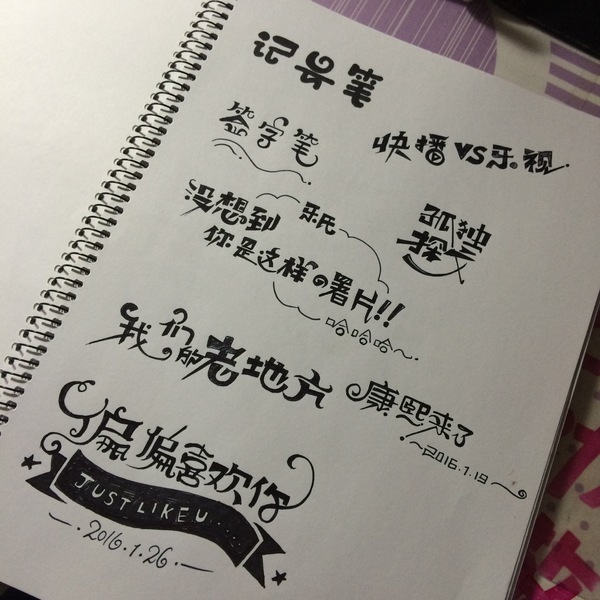 记号笔
签字笔
快播VS乐视
没想到
乐氏
你是这样の薯片!!
哈哈哈~.
孤独
探
我们的老地方
康熙来了
2016.1.19
偏偏喜欢你
JUST LIKE U...
2016.1.26